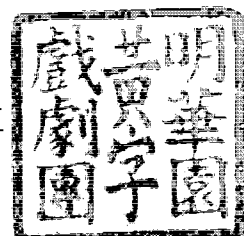 明華園
黃字
戲劇團